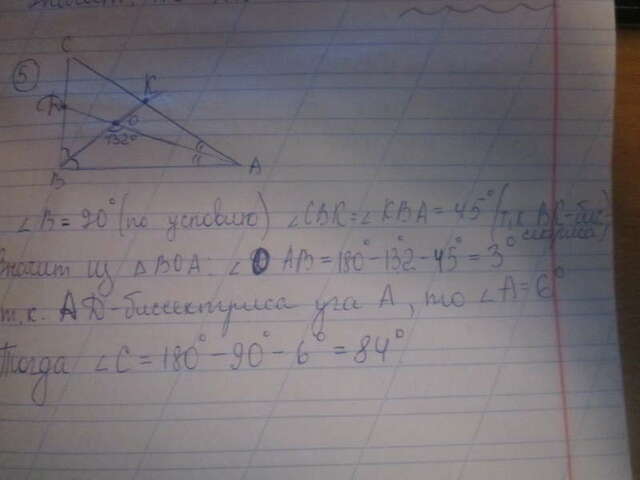 5
C
K
A
D
O
132°
B
∠B = 90° (по условию) ∠CBK = ∠KBA = 45° (т.к. BK-бис-
сектриса)
Значит из △BOA: ∠OAB = 180° - 132° - 45° = 3°
т.к. AD-биссектриса угла A, то ∠A = 6°
Тогда ∠C = 180° - 90° - 6° = 84°